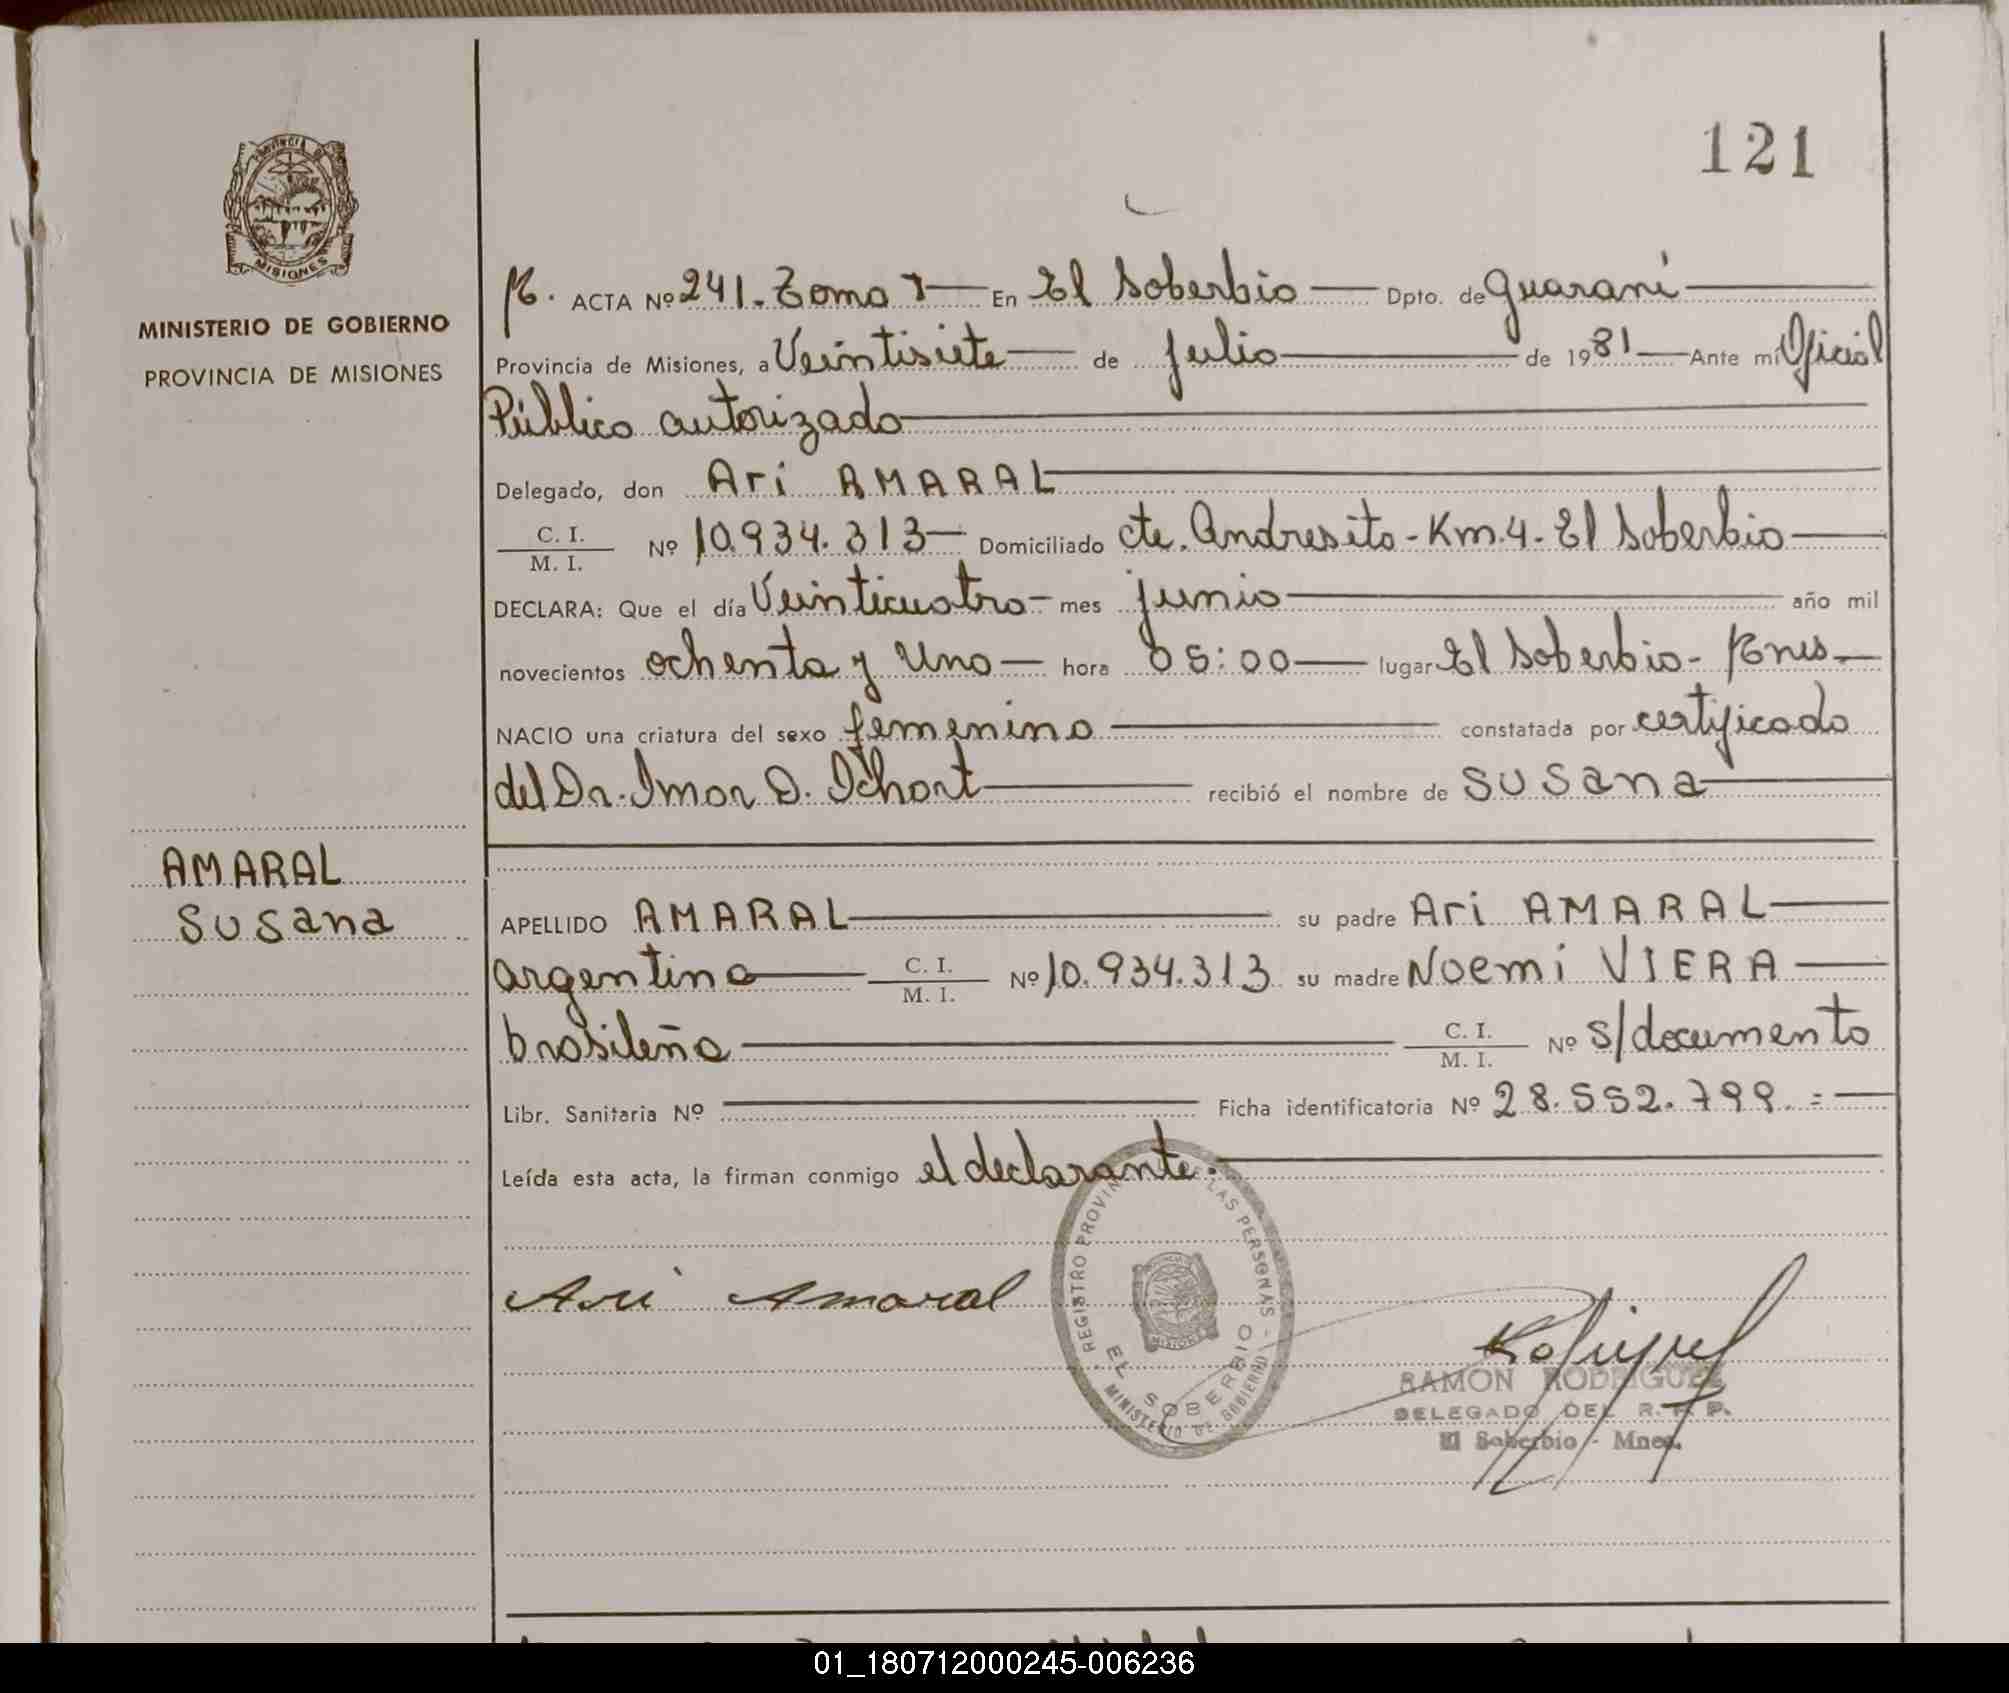 121
PROVINCIA DE
MISIONES
MINISTERIO DE GOBIERNO
PROVINCIA DE MISIONES
AMARAL
Susana
ACTA Nº 241. Tomo I En El Soberbio Dpto. de Guaraní
Provincia de Misiones, a Veintisiete de julio de 1981 Ante mí Oficial
Público autorizado
Delegado, don Ari AMARAL
C. I.
M. I. Nº 10.934.313 Domiciliado cte. Andresito - Km. 4 - El Soberbio
DECLARA: Que el día Veinticuatro - mes junio año mil
novecientos ochenta y uno hora 05:00 lugar El Soberbio - Mnes.
NACIO una criatura del sexo femenino constatada por certificado
del Dr. Imar D. recibió el nombre de Susana
APELLIDO AMARAL su padre Ari AMARAL
argentino C. I.
M. I. Nº 10.934.313 su madre Noemi VIERA
brasileña C. I.
M. I. Nº s/documento
Libr. Sanitaria Nº Ficha identificatoria Nº 28.552.799.=
Leída esta acta, la firman conmigo el declarante.
Ari Amaral
REGISTRO PROVIN LAS PERSONAS -
EL SOBERBIO
MINISTERIO DE GOBIERNO
MISIONES
RAMON RODRIGUEZ
DELEGADO DEL R. P. P.
El Soberbio - Mnes.
01_180712000245-006236